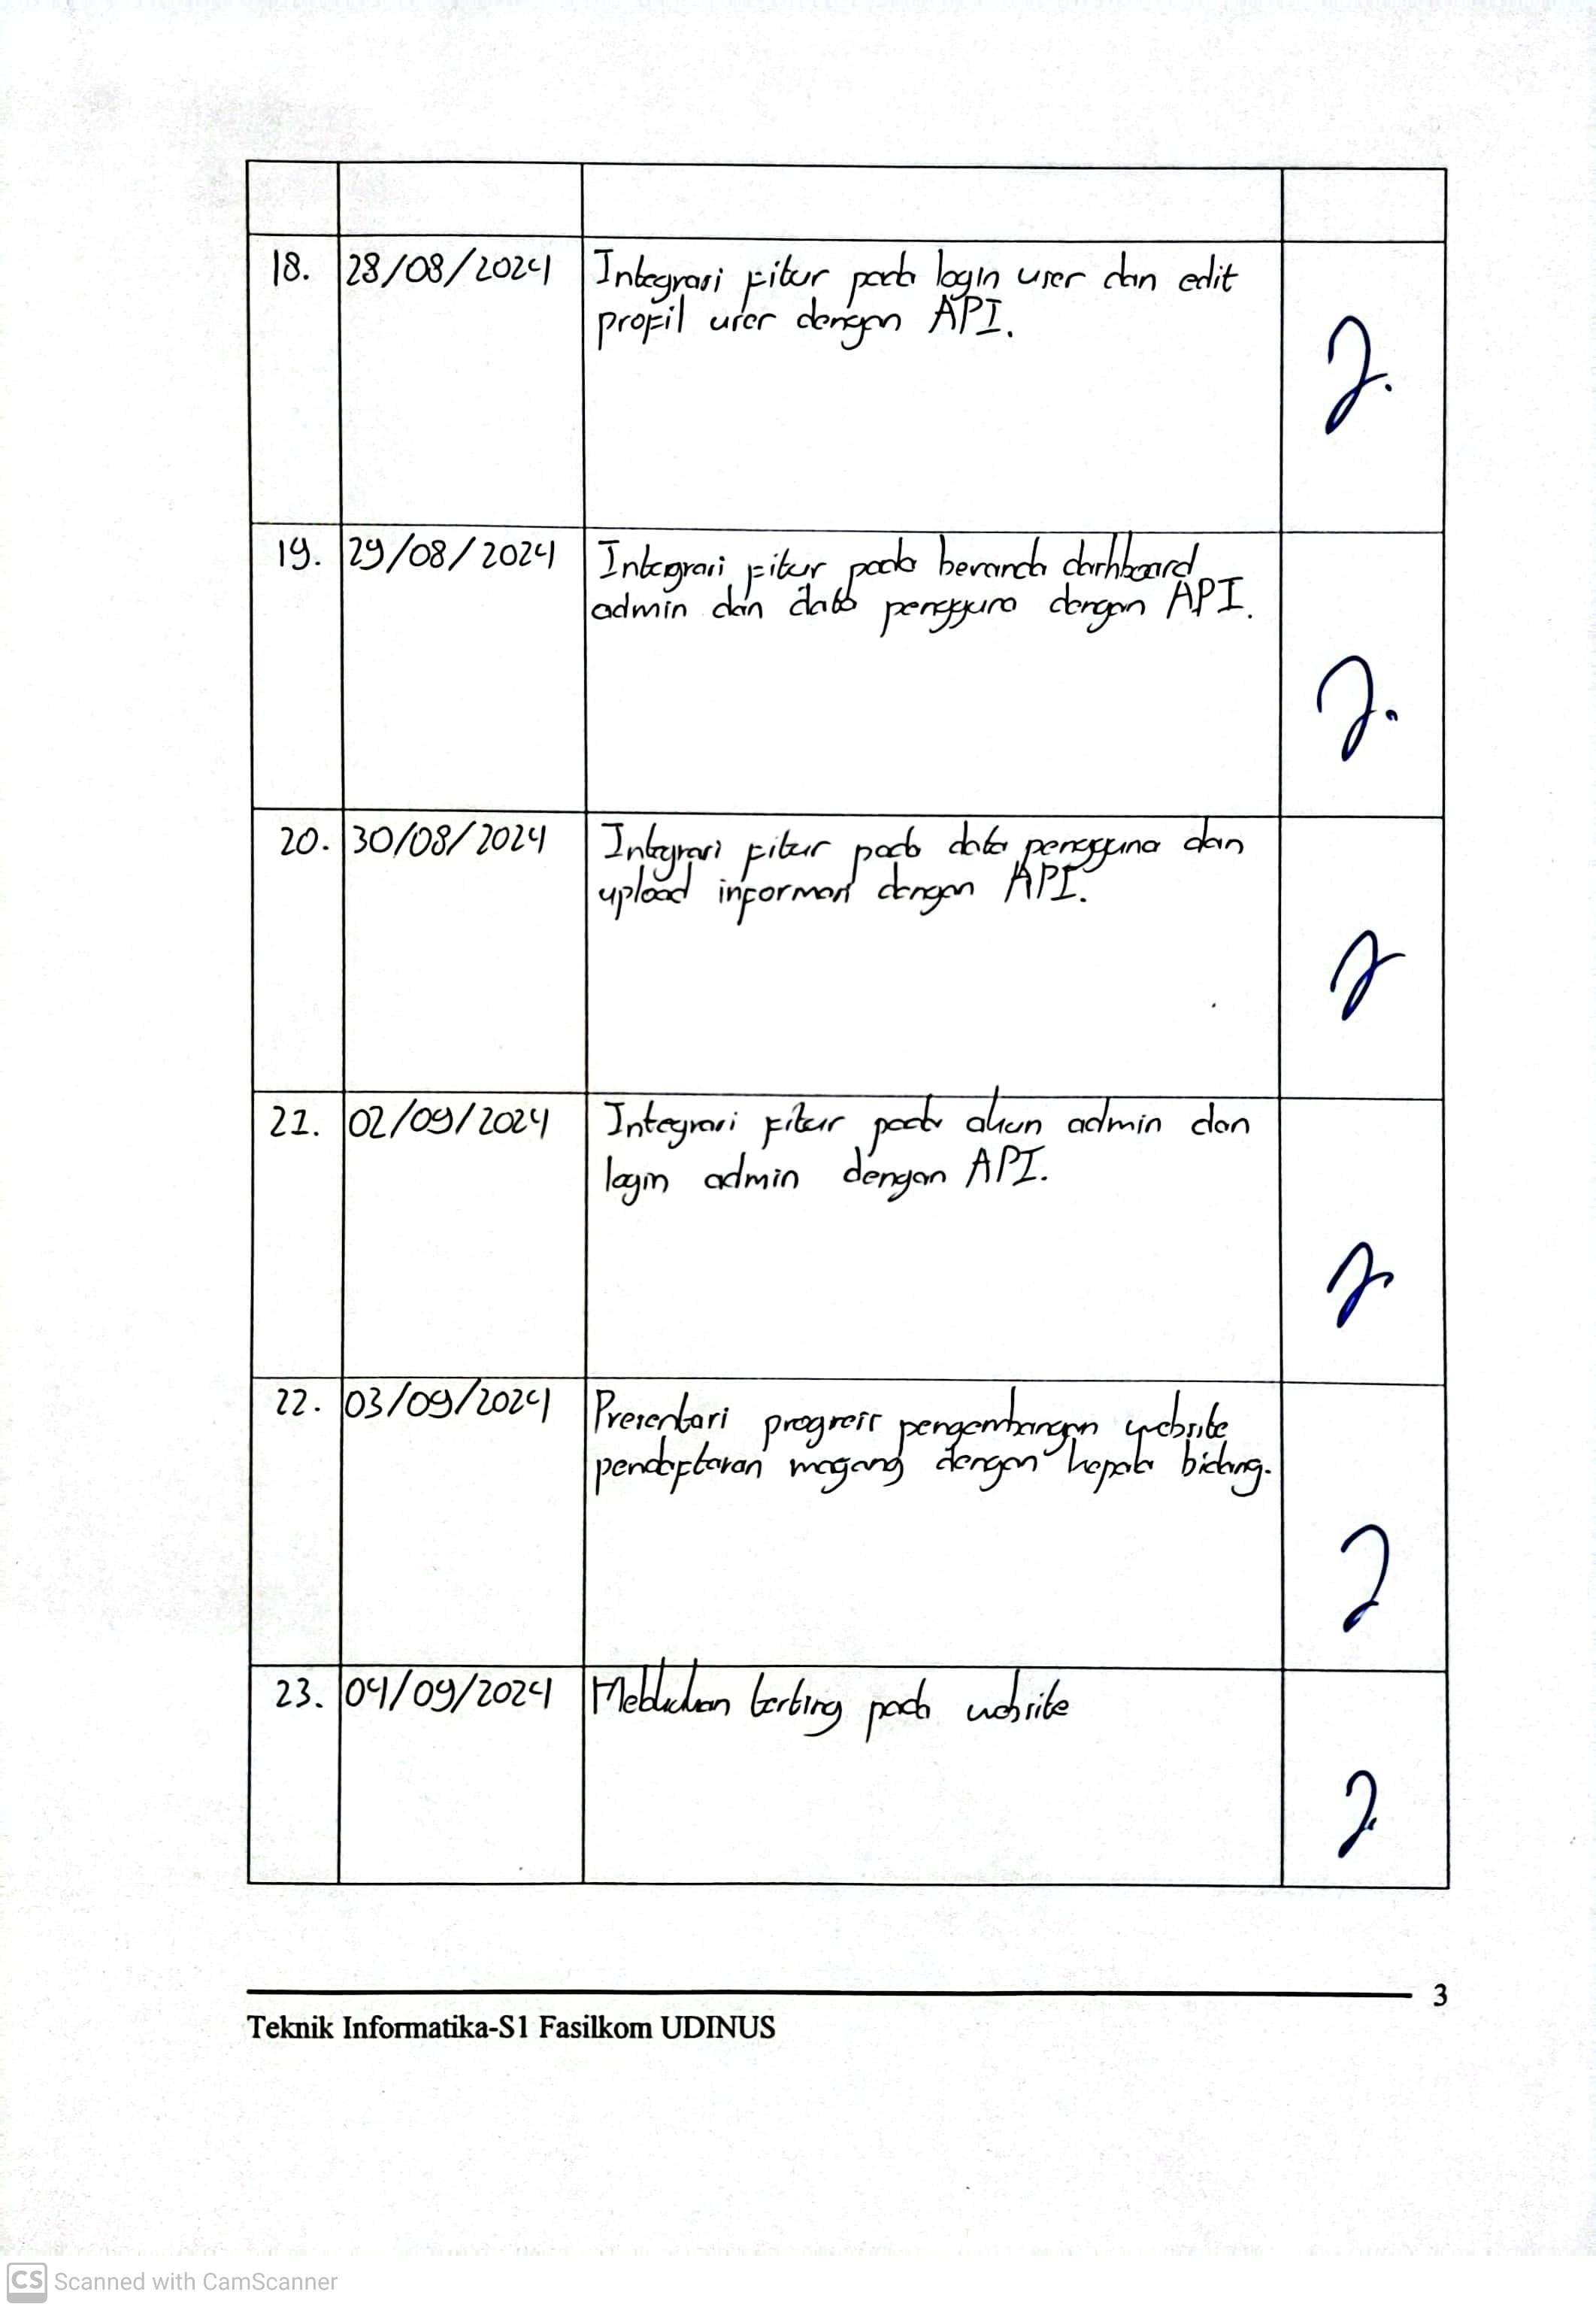 18. 28/08/2024 Integrasi fitur pada login user dan edit
profil user dengan API.
19. 29/08/2024 Integrasi fitur pada beranda dashboard
admin dan data pengguna dengan API.
20. 30/08/2024 Integrasi fitur pada data pengguna dan
upload informasi dengan API.
21. 02/09/2024 Integrasi fitur pada akun admin dan
login admin dengan API.
22. 03/09/2024 Presentasi progress pengembangan website
pendaftaran magang dengan kepala bidang.
23. 04/09/2024 testing pada website
3
Teknik Informatika-S1 Fasilkom UDINUS
CS Scanned with CamScanner